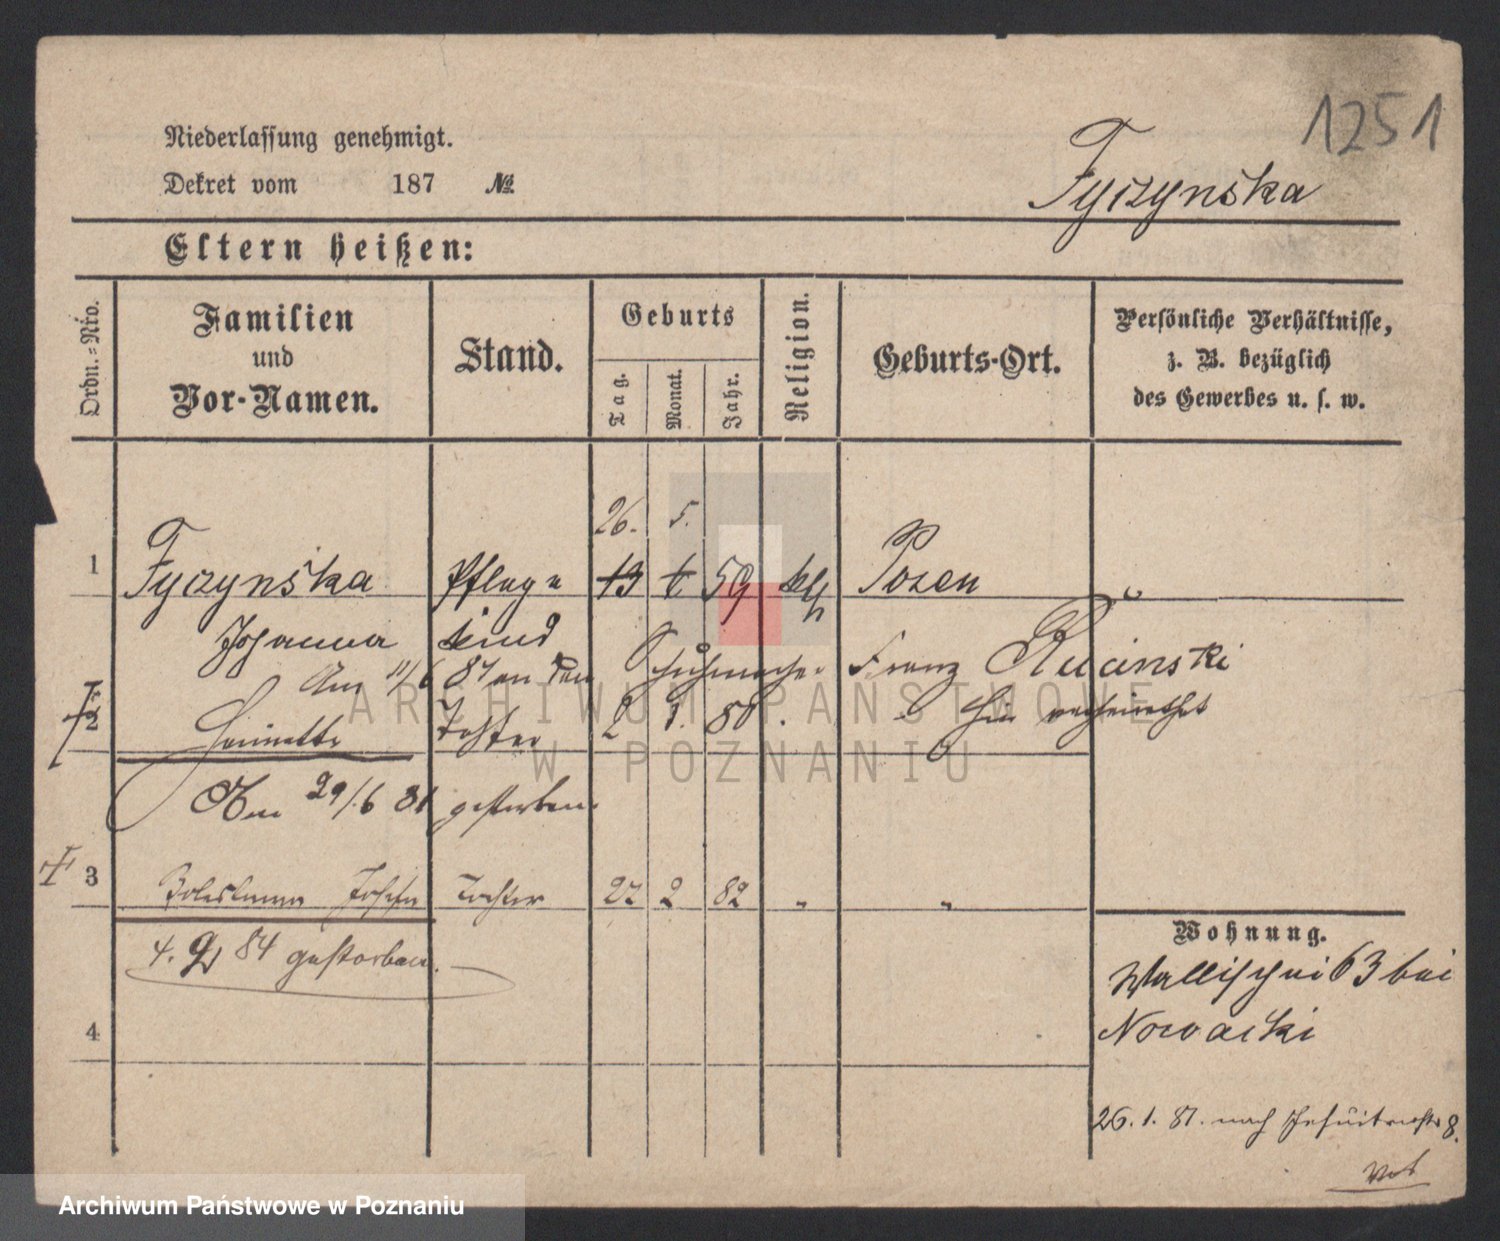 1251
Niederlassung genehmigt.
Dekret vom 187 №
Fyczynska
Eltern heißen:
Ordn.=Nro.
Familien
und
Vor-Namen.
Stand.
Geburts
Tag.
Monat.
Jahr.
Religion.
Geburts-Ort.
Persönliche Verhältnisse,
z. B. bezüglich
des Gewerbes u. s. w.
26. 5.
1 Fyczynska Pflege 13 6 59 kth Posen
Johanna kind
Am 11/6 81 an den Schuhmacher Franz Rucinski
2 Tochter 2 1. 80. " hier verheirathet
Am 29/6 81 gestorben.
3 Boleslawa Josefa Tochter 27 2 82 " "
4. 9 84 gestorben.
4
Wohnung.
Wallischei 63 bei
Nowacki
26. 1. 81. nach Jesuitenstr 8.
ARCHIWUM PAŃSTWOWE
W POZNANIU
Archiwum Państwowe w Poznaniu